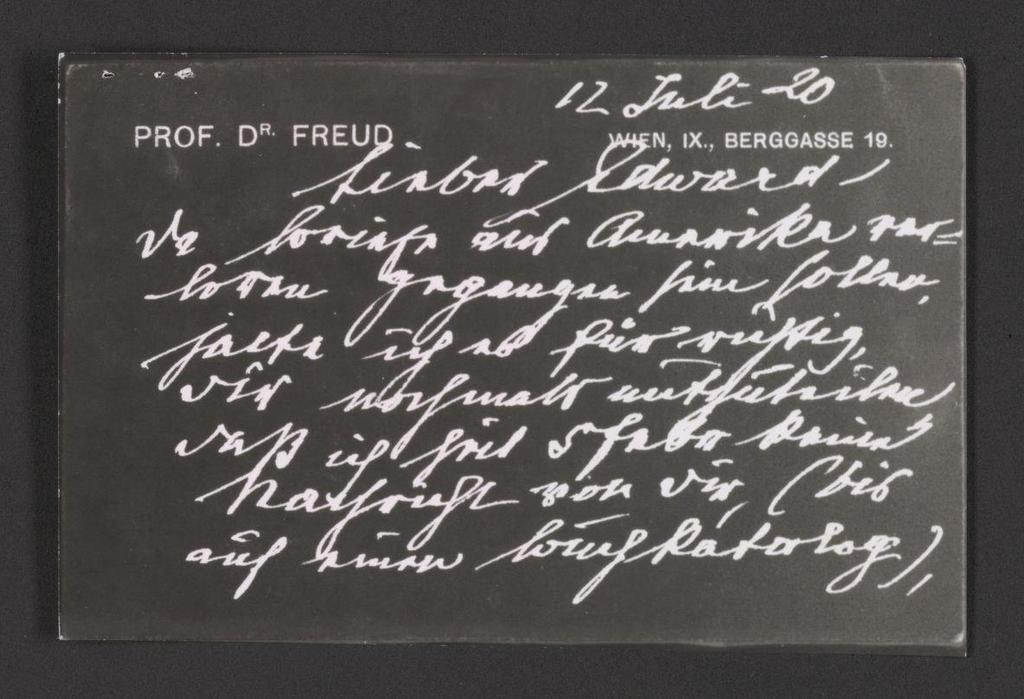 12 Juli 20
PROF. DR. FREUD WIEN, IX., BERGGASSE 19.
Lieber Edward
Da Briefe aus Amerika ver=
loren gegangen sein sollen,
halte ich es für richtig,
dir nochmals mitzuteilen
daß ich seit 5 Febr keine
Nachricht von dir, (bis
auf einen Buchkatalog),